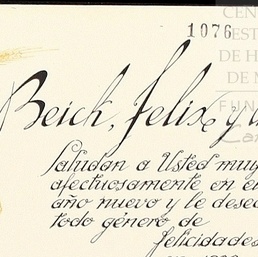 1076
CEN
EST
DE H
DE M
FUN
Beich, felix, y
Saludan a Usted muy
afectuosamente en el
año nuevo y le dese
todo género de
felicidades